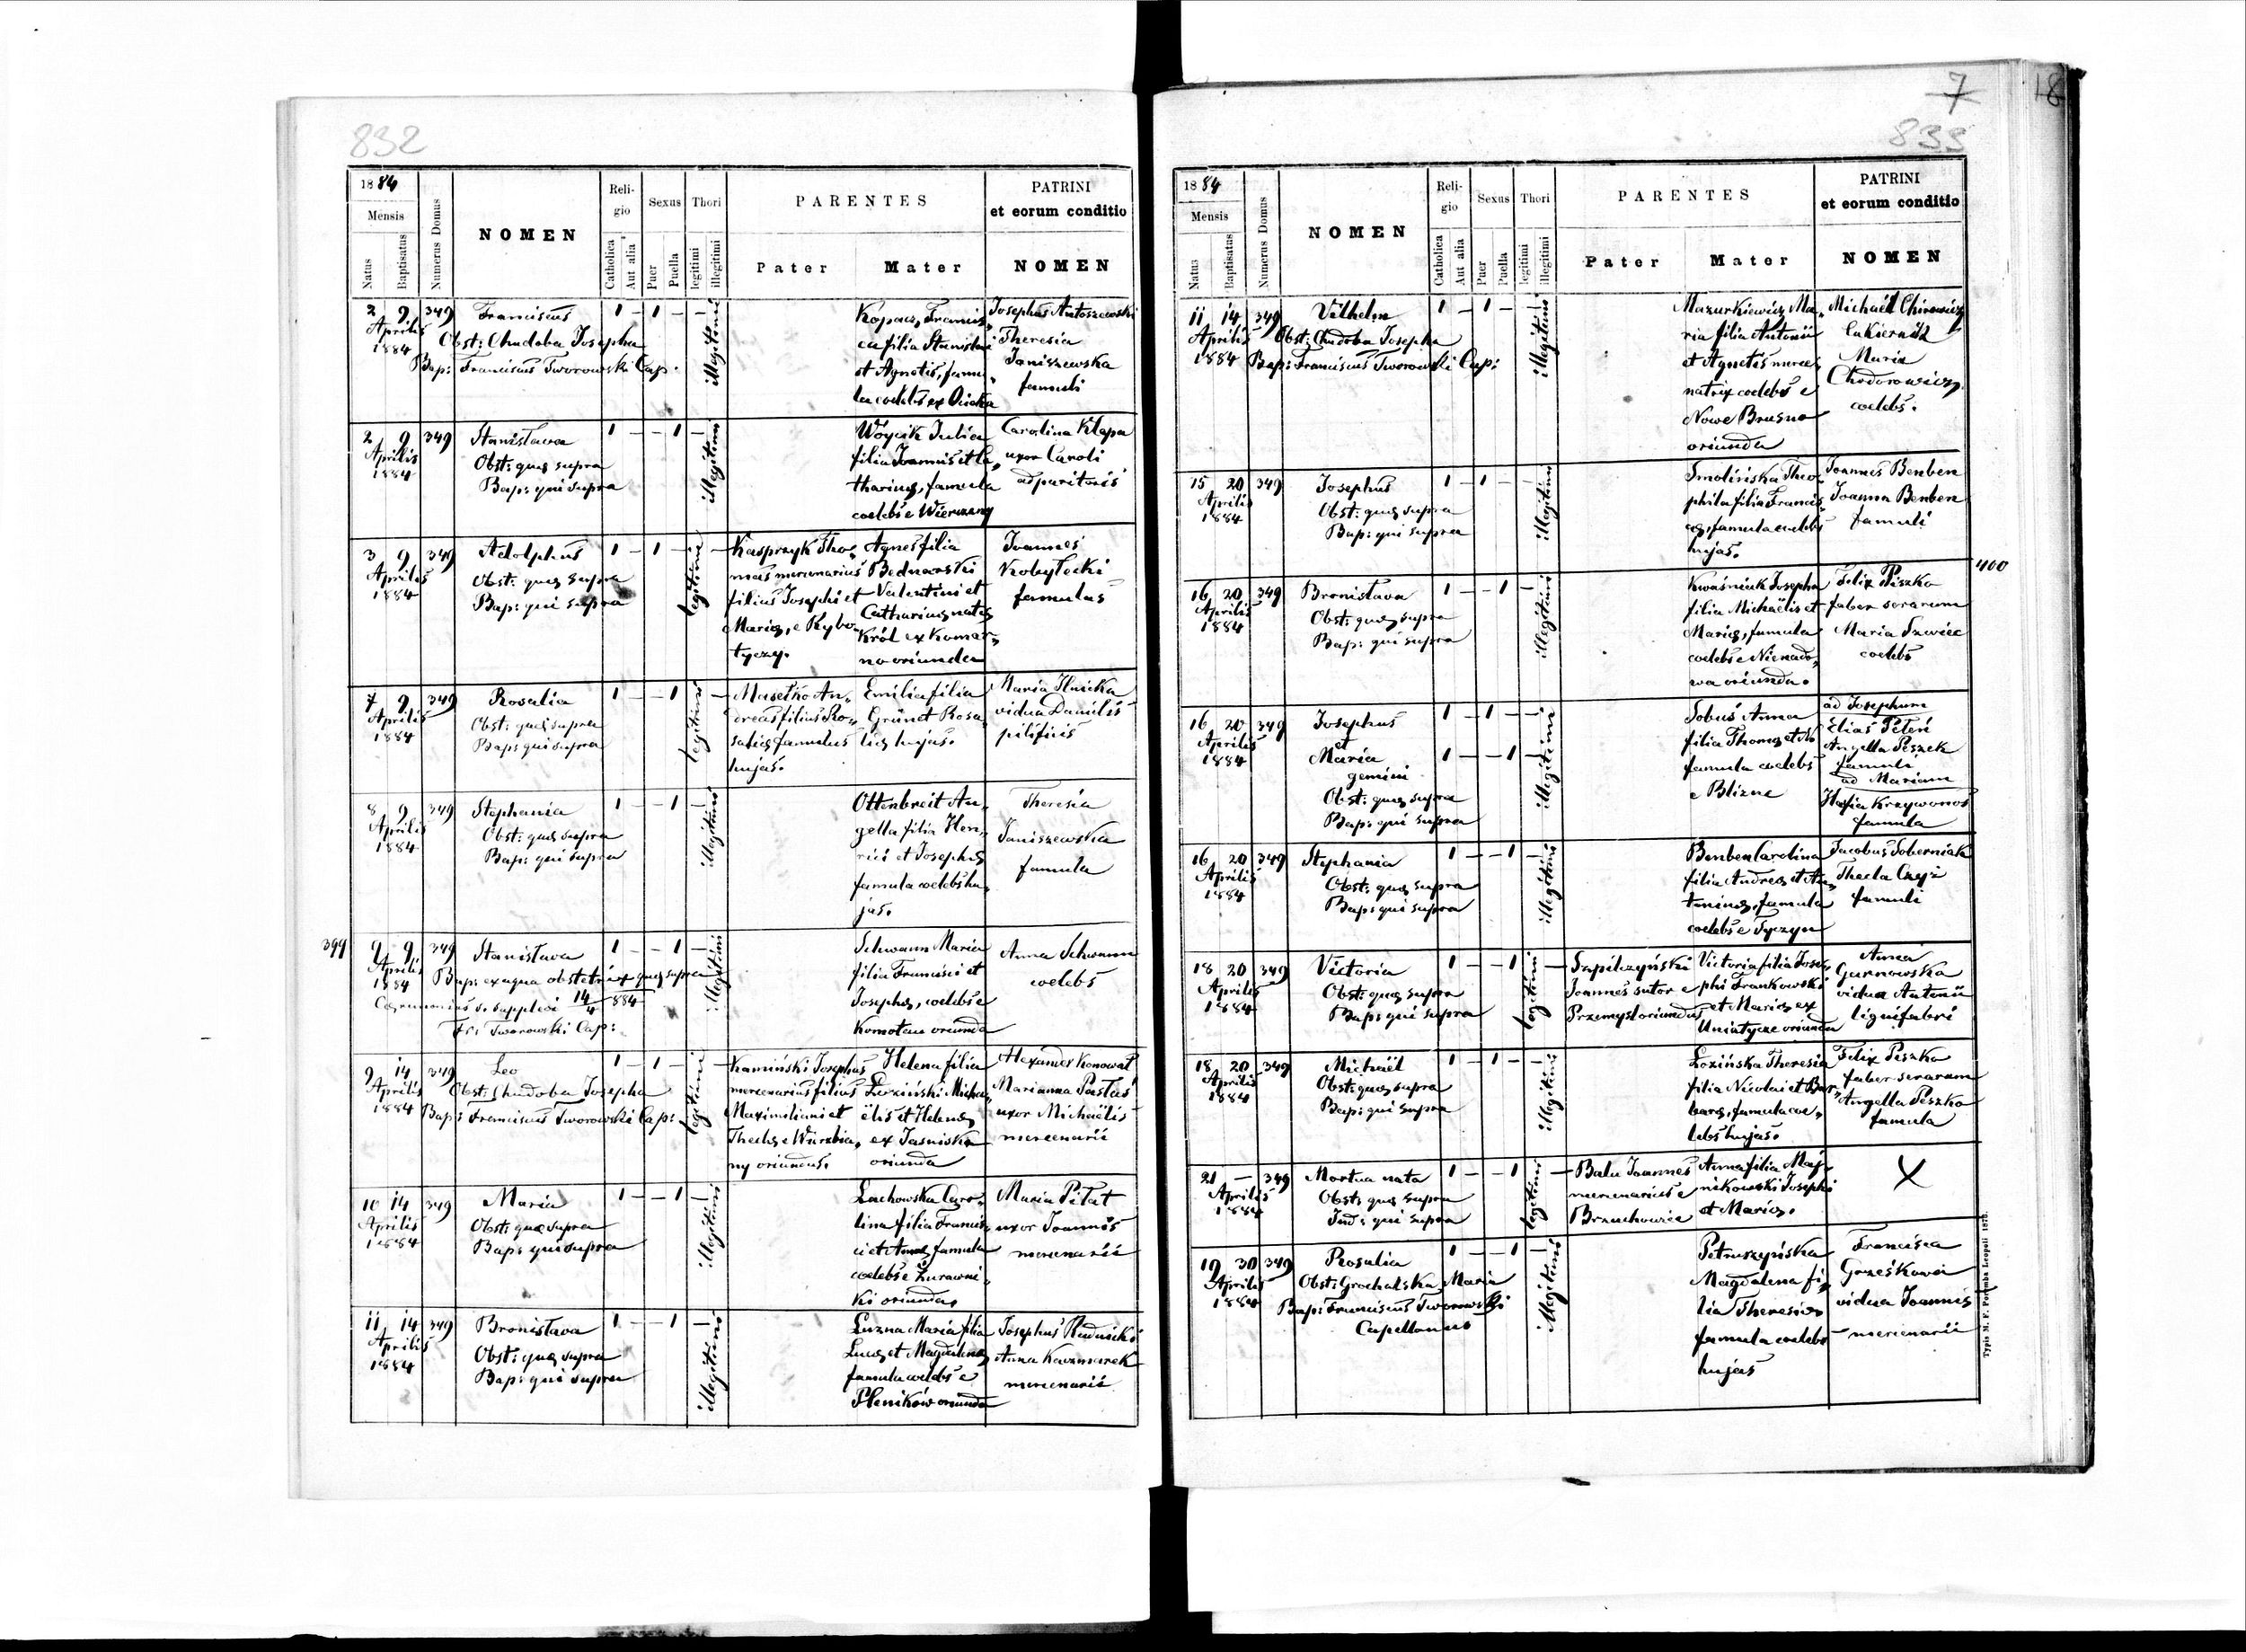 832
1884
Mensis
Natus
Baptisatus
Numerus Domus
NOMEN
Reli-
gio
Catholica
Aut alia
Sexus
Puer
Puella
Thori
legitimi
illegitimi
PARENTES
Pater
Mater
PATRINI
et eorum conditio
NOMEN
2 9 349 Franciscus 1 - 1 - - 1
Aprilis
1884
Obst: Chudoba Josepha
Bap: Franciscus Tworowski Cap.
illegitimi
Kopacz, Francis
ca filia Stanislai
et Agnetis, famu
la coelebs ex
Josephus Antoszewski
Theresia
Janiszewska
famuli
2 9 349 Stanisława 1 - - 1 - 1
Aprilis
1884
Obst: quæ supra
Bap: qui supra
illegitimi
Wóycik Julia
filia Joannis et Ca
tharinæ, famula
coelebs e Wierzany
Carolina Klapa
uxor Caroli
adparitoris
3 9 349 Adolphus 1 - 1 - 1 -
Aprilis
1884
Obst: quæ supra
Bap: qui supra
legitimi
Kasprzyk Tho
mas mercenarius
filius Josephi et
Mariæ, e Rybo
tyczy.
Agnes filia
Bednarski
Valentini et
Catharinæ natæ
Król ex Komar
no oriunda
Joannes
Kobyłecki
famulus
7 9 349 Rosalia 1 - - 1 1 -
Aprilis
1884
Obst: quæ supra
Bap: qui supra
legitimi
Masełko An
dreas filius Ro
saliæ famulus
hujas.
Emilia filia
Gründ Rosa
liæ hujas.
Maria Ilnicka
vidua Danielis
pilificis
8 9 349 Stephania 1 - - 1 - 1
Aprilis
1884
Obst: quæ supra
Bap: qui supra
illegitimi
Ottenbreit An
gella filia Hen
rici et Josephæ
famula coelebs hu
jas.
Theresia
Janiszewska
famula
399
9 9 349 Stanisława 1 - - 1 - 1
Aprilis
1884
Bap: ex aqua obstetrix quæ supra
Cæremonias s. supplevi 14/4 884
Fr: Tworowski Cap:
illegitimi
Schwann Maria
filia Francisci et
Josephæ, coelebs e
Komotau oriunda
Anna Schwann
coelebs
9 14 349 Leo 1 - 1 - 1 -
Aprilis
1884
Obst: Chudoba Josepha
Bap: Franciscus Tworowski Cap:
legitimi
Kamiński Josephus
mercenarius filius
Maximiliani et
Theclæ e Wierzbia
ny oriundus.
Helena filia
Łoziński Micha
ëlis et Helenæ
ex Jasniska
oriunda
Alexander Konował
Marianna Pastuś
uxor Michaëlis
mercenarii
10 14 349 Maria 1 - - 1 - 1
Aprilis
1884
Obst: quæ supra
Bap: qui supra
illegitimi
Lachowska Caro
lina filia Francis
ci et Annæ famula
coelebs e Żurawni
ki oriunda.
Maria Piłat
uxor Joannis
mercenarii
11 14 349 Bronisława 1 - - 1 - 1
Aprilis
1884
Obst: quæ supra
Bap: qui supra
illegitimi
Luzna Maria filia
Lucæ et Magdalenæ
famula coelebs e
Pleników oriunda
Josephus Rudnicki
Anna Kaczmarek
mercenarii
7
18
833
1884
Mensis
Natus
Baptisatus
Numerus Domus
NOMEN
Reli-
gio
Catholica
Aut alia
Sexus
Puer
Puella
Thori
legitimi
illegitimi
PARENTES
Pater
Mater
PATRINI
et eorum conditio
NOMEN
11 14 349 Vilhelm 1 - 1 - - 1
Aprilis
1884
Obst: Chudoba Josepha
Bap: Franciscus Tworowski Cap:
illegitimi
Mazurkiewicz Ma
ria filia Antonii
et Agnetis merce
natrix coelebs e
Nowe Brusno
oriunda
Michaël Chirowicz
Cukiernik
Maria
Chodorowicz
coelebs.
15 20 349 Josephus 1 - 1 - - 1
Aprilis
1884
Obst: quæ supra
Bap: qui supra
illegitimi
Smolińska Theo
phila filia Francis
cæ, famula coelebs
hujas.
Joannes Benben
Joanna Benben
famuli
400
16 20 349 Bronisława 1 - - 1 - 1
Aprilis
1884
Obst: quæ supra
Bap: qui supra
illegitimi
Kwaśniak Josepha
filia Michaëlis et
Mariæ, famula
coelebs e Nienado
wa oriunda.
Felix Piszko
faber serarum
Maria Szwiec
coelebs
16 20 349 Josephus 1 - 1 - - 1
Aprilis
1884
et
Maria 1 - - 1 - 1
gemini
Obst: quæ supra
Bap: qui supra
illegitimi
Sobuś Anna
filia Thomæ et M
famula coelebs
e Blizne
ad Josephum
Elias Peleń
Angella Peszek
famuli
ad Mariam
Krzywonos
famula
16 20 349 Stephania 1 - - 1 - 1
Aprilis
1884
Obst: quæ supra
Bap: qui supra
illegitimi
Benben Carolina
filia Andreæ et An
toninæ, famula
coelebs e Tyczyn
Jacobus Soberniak
Thecla Czyż
famuli
18 20 349 Victoria 1 - - 1 1 -
Aprilis
1884
Obst: quæ supra
Bap: qui supra
legitimi
Szpilczyński
Joannes sutor e
Przemysl oriundus
Victoria filia Jose
phi Frankowski
et Mariæ ex
Uniatycze oriunda
Anna
Gurnowska
vidua Antonii
lignifabri
18 20 349 Michaël 1 - 1 - - 1
Aprilis
1884
Obst: quæ supra
Bap: qui supra
illegitimi
Łozińska Theresia
filia Nicolai et Bar
baræ, famula coe
lebs hujas.
Felix Peszko
faber serarum
Angella Peszko
famula
21 - 349 Mortua nata 1 - - 1 1 -
Aprilis
1884
Obst: quæ supra
Ind: qui supra
legitimi
Bału Joannes
mercenarius e
Brzuchowice
Anna filia Maj
nikowski Josephi
et Mariæ.
X
19 30 349 Rosalia 1 - - 1 - 1
Aprilis
1884
Obst: Grochalska Maria
Bap: Franciscus Tworowski
Capellanus
illegitimi
Petruszyńska
Magdalena fi
lia Theresiæ
famula coelebs
hujas
Francisca
Grześkowa
vidua Joannis
mercenarii
Typis M. F. Poremba Leopoli 1878.